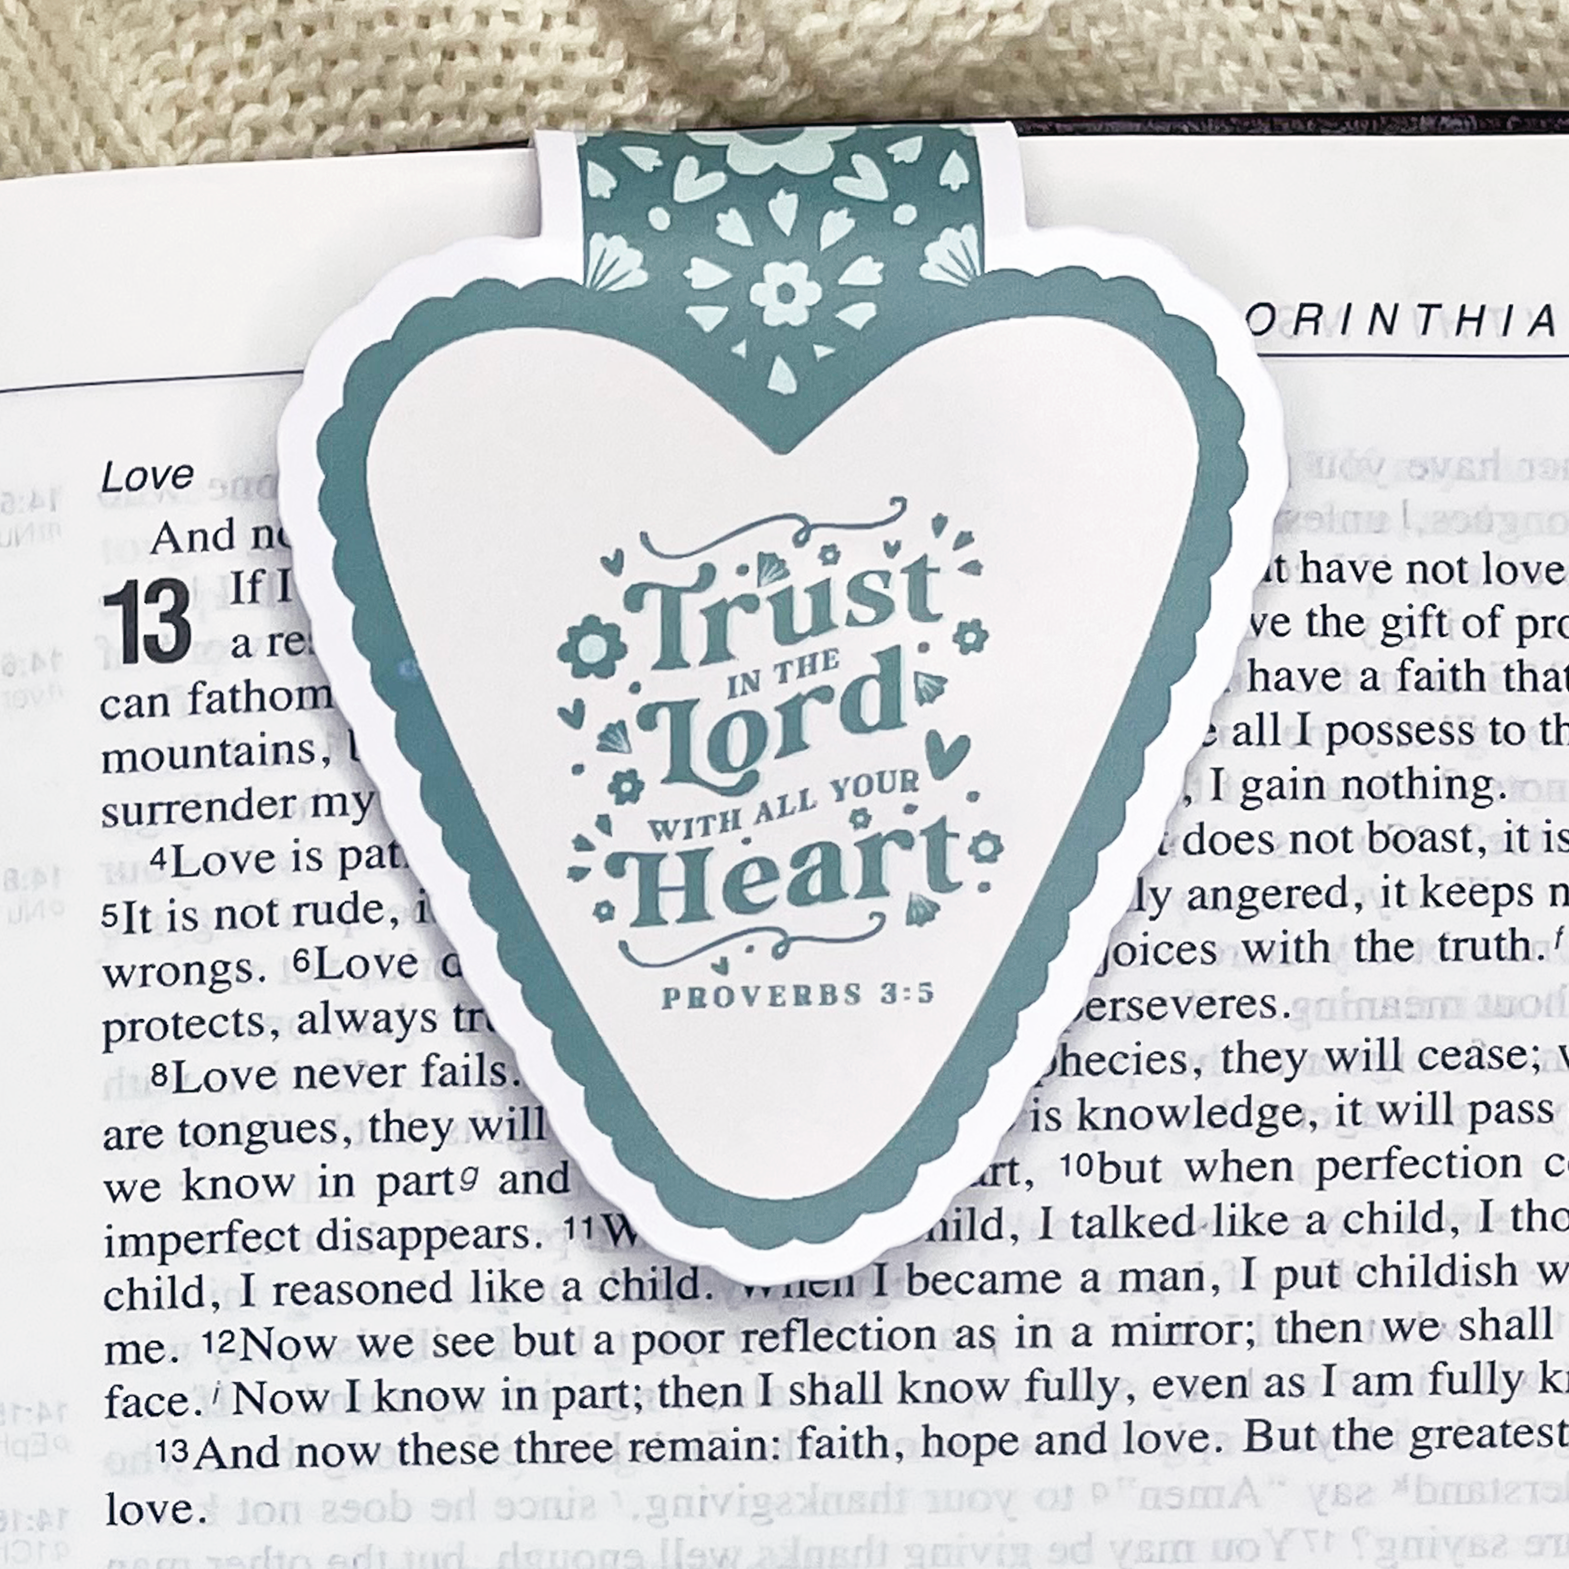 ORINTHIA
Love
And no
13 If I
a re
can fathom
mountains,
surrender my
4Love is pat
5It is not rude, i
wrongs. 6Love d
protects, always tru
8Love never fails.
are tongues, they will
we know in partg and
imperfect disappears. 11W
child, I reasoned like a child. When I became a man, I put childish w
me. 12Now we see but a poor reflection as in a mirror; then we shall
face.i Now I know in part; then I shall know fully, even as I am fully k
13And now these three remain: faith, hope and love. But the greatest
love.
Trust
IN THE
Lord
WITH ALL YOUR
Heart
PROVERBS 3:5
t have not love
ve the gift of pro
have a faith that
e all I possess to th
, I gain nothing.
t does not boast, it is
ly angered, it keeps n
joices with the truth.f
erseveres.
phecies, they will cease; w
is knowledge, it will pass
art, 10but when perfection c
hild, I talked like a child, I tho